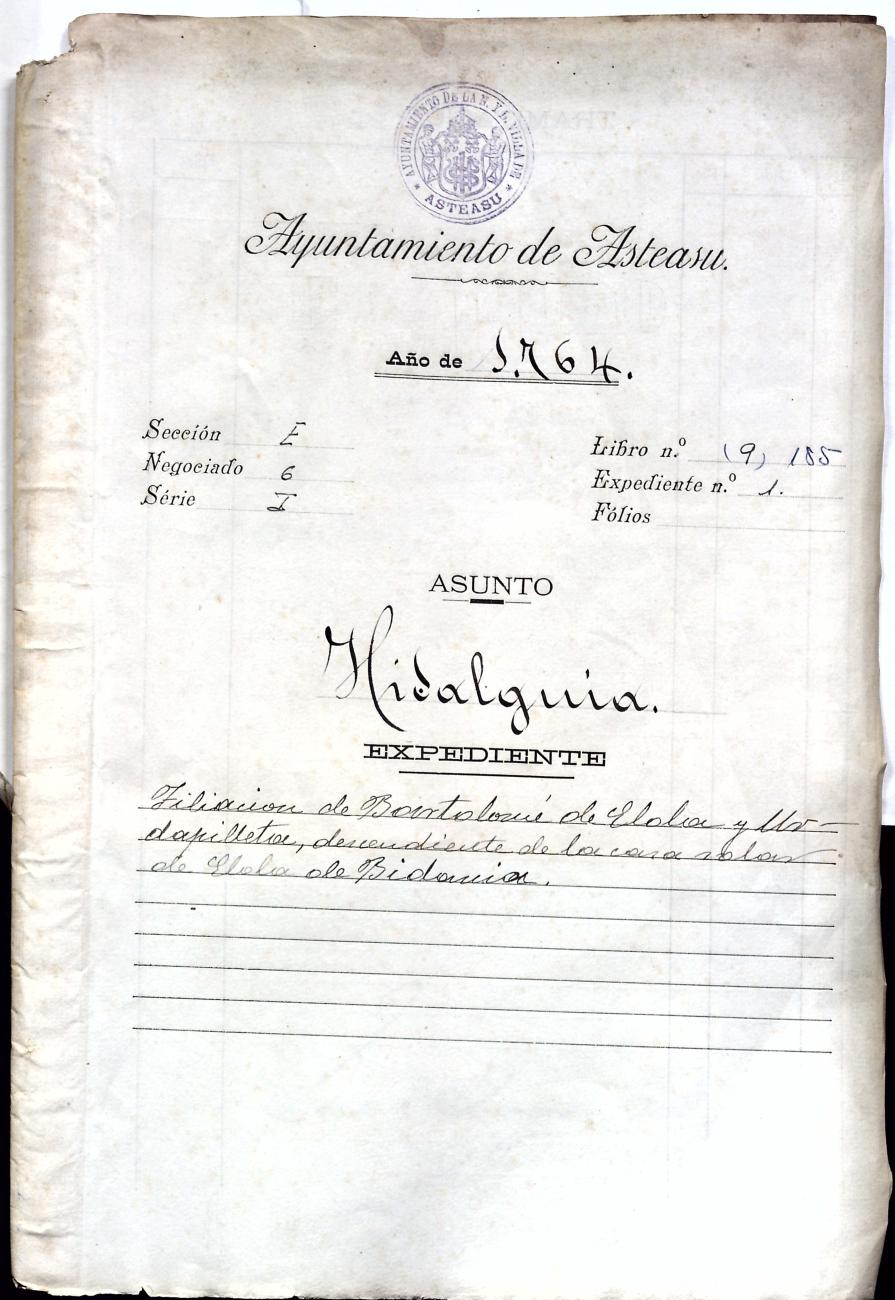 AYUNTAMIENTO DE LA N. Y L. VILLA DE
* ASTEASU *
Ayuntamiento de Asteasu.
Año de 1.764.
Sección E
Negociado 6
Série I
Libro n.º (9) 185
Expediente n.º 1.
Fólios
ASUNTO
Hidalguia.
EXPEDIENTE
Filiacion de Bartolomé de Elola y Ur-
dapilleta, descendiente de la casa solar
de Elola de Bidania.